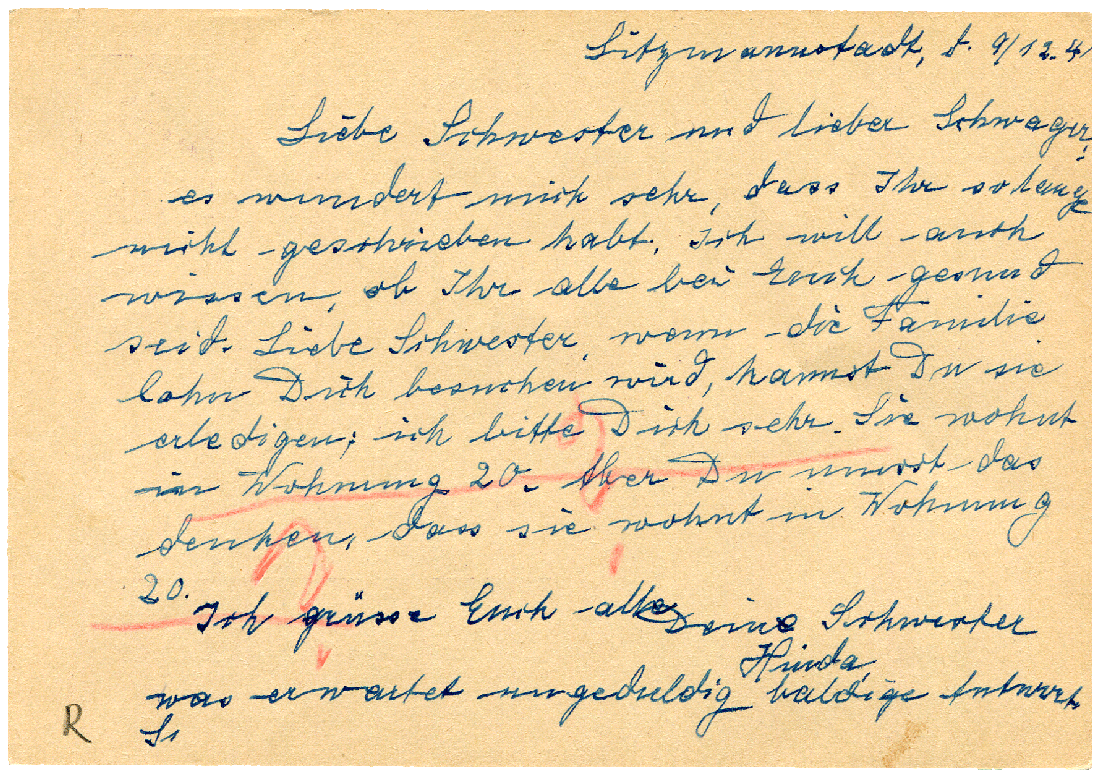 Litzmannstadt, d. 9/12.41
Liebe Schwester und lieber Schwager!
es wundert mich sehr, dass Ihr so lange
nicht geschrieben habt. Ich will auch
wissen, ob Ihr alle bei Euch gesund
seid. Liebe Schwester, wenn die Familie
lohn Dich besuchen wird, kannst Du sie
erledigen; ich bitte Dich sehr. Sie wohnt
in Wohnung 20. Aber Du musst das
denken, dass sie wohnt in Wohnung
20.
Ich grüsse Euch alle Deine Schwester
Hinda,
was erwartet ungeduldig baldige Antwort.
R